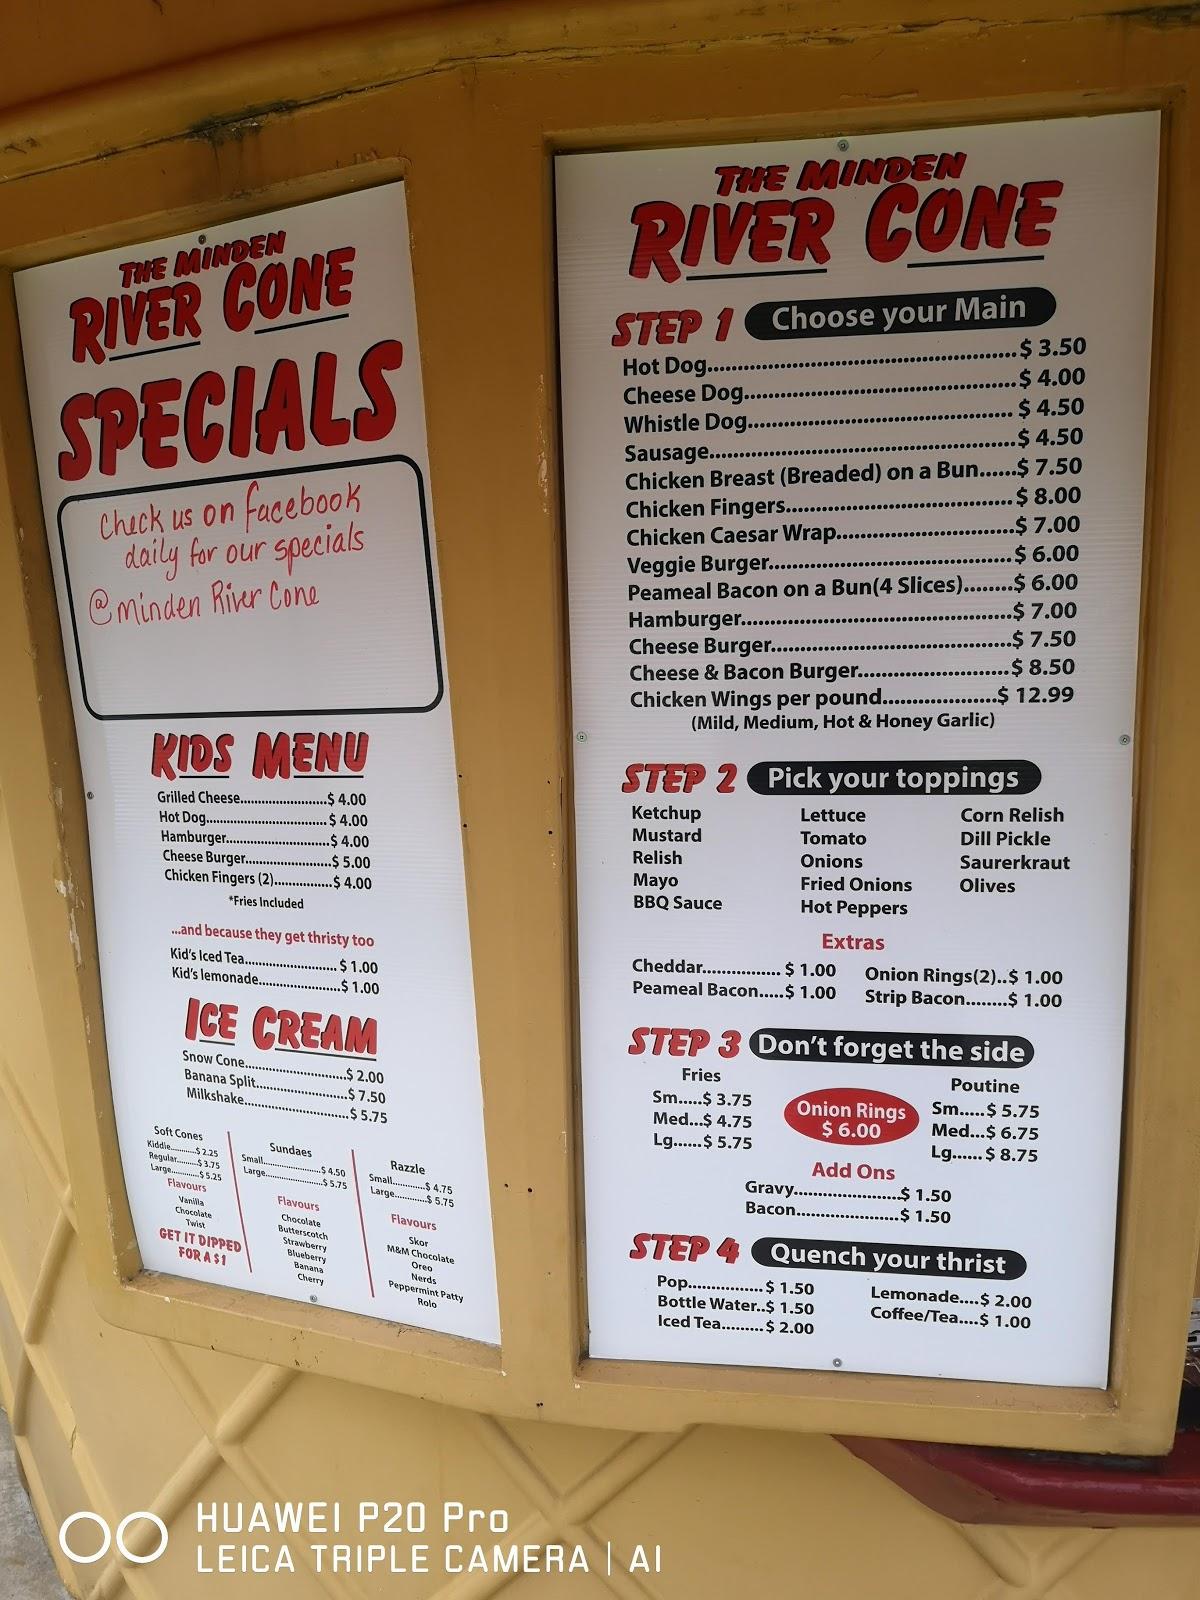 THE MINDEN
RIVER CONE
SPECIALS
Check us on facebook
daily for our specials
@minden River Cone
KIDS MENU
Grilled Cheese..........................$ 4.00
Hot Dog....................................$ 4.00
Hamburger...............................$ 4.00
Cheese Burger..........................$ 5.00
Chicken Fingers (2)..................$ 4.00
*Fries Included
...and because they get thristy too
Kid's Iced Tea..........................$ 1.00
Kid's lemonade.......................$ 1.00
ICE CREAM
Snow Cone..............................$ 2.00
Banana Split............................$ 7.50
Milkshake................................$ 5.75
Soft Cones
Kiddie..........$ 2.25
Regular........$ 3.75
Large...........$ 5.25
Flavours
Vanilla
Chocolate
Twist
GET IT DIPPED
FOR A $1
Sundaes
Small......................$ 4.50
Large......................$ 5.75
Flavours
Chocolate
Butterscotch
Strawberry
Blueberry
Banana
Cherry
Razzle
Small............$ 4.75
Large............$ 5.75
Flavours
Skor
M&M Chocolate
Oreo
Nerds
Peppermint Patty
Rolo
THE MINDEN
RIVER CONE
STEP 1 Choose your Main
Hot Dog......................................................$ 3.50
Cheese Dog................................................$ 4.00
Whistle Dog...............................................$ 4.50
Sausage......................................................$ 4.50
Chicken Breast (Breaded) on a Bun......$ 7.50
Chicken Fingers........................................$ 8.00
Chicken Caesar Wrap...............................$ 7.00
Veggie Burger...........................................$ 6.00
Peameal Bacon on a Bun(4 Slices)........$ 6.00
Hamburger................................................$ 7.00
Cheese Burger..........................................$ 7.50
Cheese & Bacon Burger..........................$ 8.50
Chicken Wings per pound....................$ 12.99
(Mild, Medium, Hot & Honey Garlic)
STEP 2 Pick your toppings
Ketchup
Mustard
Relish
Mayo
BBQ Sauce
Lettuce
Tomato
Onions
Fried Onions
Hot Peppers
Corn Relish
Dill Pickle
Saurerkraut
Olives
Extras
Cheddar................$ 1.00
Peameal Bacon.....$ 1.00
Onion Rings(2)..$ 1.00
Strip Bacon........$ 1.00
STEP 3 Don't forget the side
Fries
Sm.....$ 3.75
Med...$ 4.75
Lg......$ 5.75
Onion Rings
$ 6.00
Poutine
Sm.....$ 5.75
Med...$ 6.75
Lg......$ 8.75
Add Ons
Gravy.......................$ 1.50
Bacon......................$ 1.50
STEP 4 Quench your thrist
Pop................$ 1.50
Bottle Water..$ 1.50
Iced Tea.........$ 2.00
Lemonade....$ 2.00
Coffee/Tea....$ 1.00
HUAWEI P20 Pro
LEICA TRIPLE CAMERA | AI